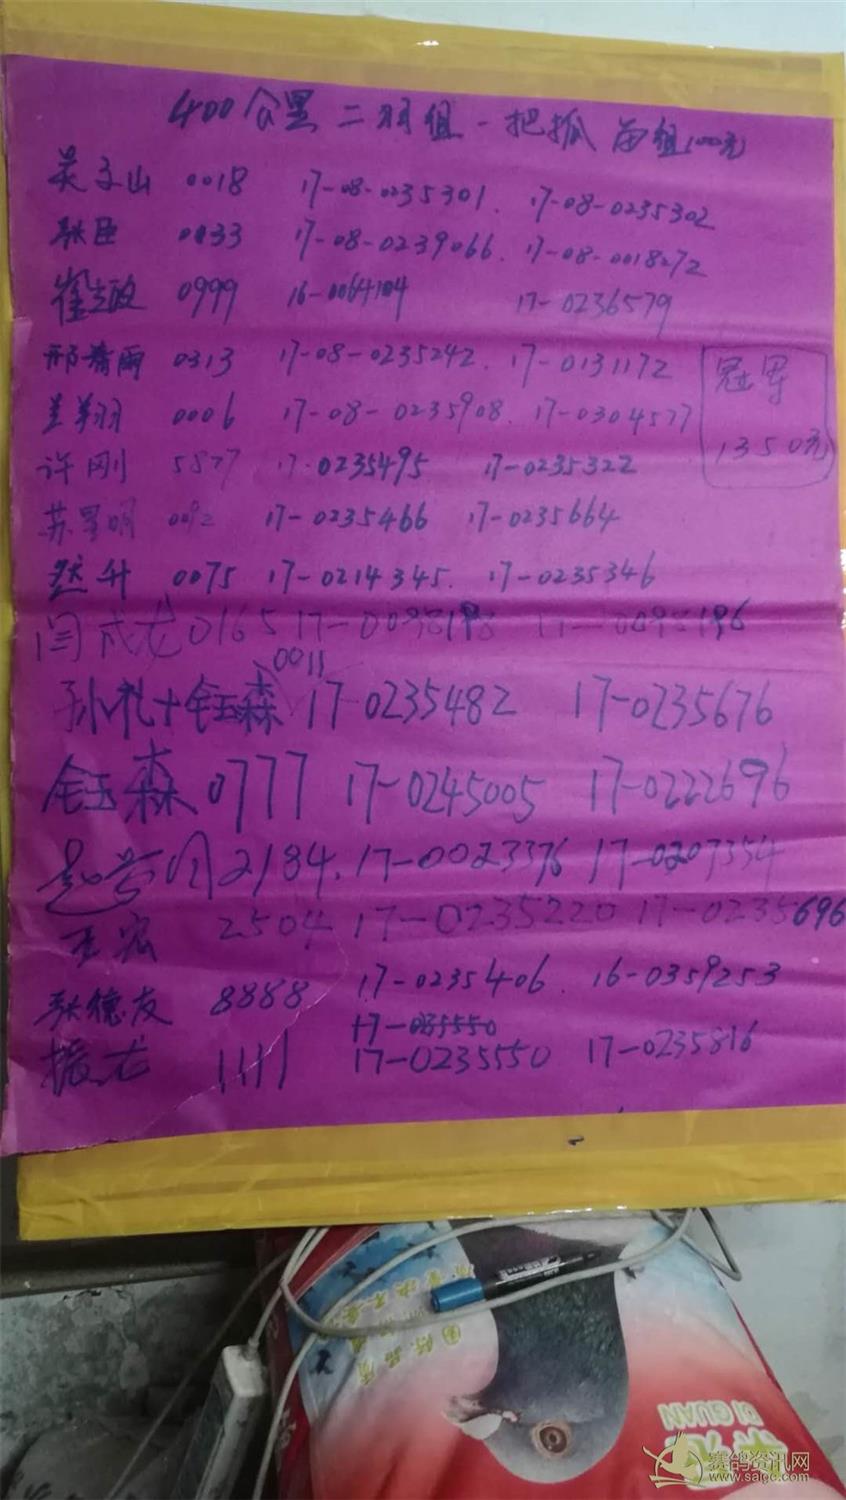 400公里 二羽组 一把抓 每组100元
吴子山 0018 17-08-0235301. 17-08-0235302
耿臣 0033 17-08-0239066. 17-08-0018272
崔志敏 0999 16-0064104 17-0236579
邢春雨 0313 17-08-0235242. 17-0131172
冠军
0006 17-08-0235908. 17-0304577
1350元
许刚 5877 17-0235495 17-0235322
苏星明 0092 17-0235466 17-0235664
升 0075 17-0214345. 17-0235346
闫成龙 0165 17-0098198 17-0098196
0011
孙札+钰森 17-0235482 17-0235676
钰森 0777 17-0245005 17-0222696
2184. 17-0023376 17-0207354
王宏 2504 17-0235220 17-0235696
耿德友 8888 17-0235406. 16-0359253
17-035550
振龙 1111 17-0235550 17-0235816
国际品质
DI GUAN
赛鸽资讯网
www.saige.com